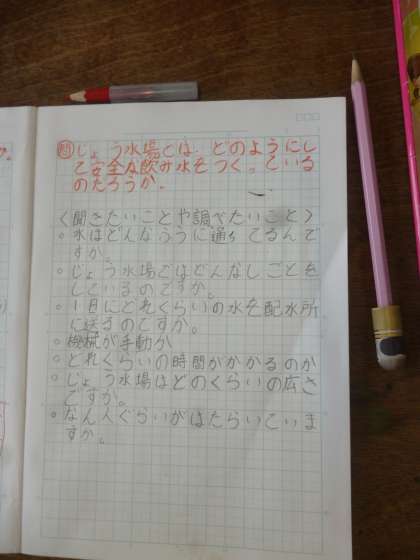 問 じょう水場とは、どのようにし
て安全な飲み水をつくっている
のだろうか。
〈聞きたいことや調べたいこと〉
○水はどんなふうに通ってるんで
すか。
○じょう水場ではどんなしごとを
しているのですか。
○1日にどれくらいの水を配水所
に送るのですか。
○機械か手動か
○どれくらいの時間がかかるのか
○じょう水場はどのくらいの広さ
ですか。
○なん人ぐらいがはたらいていま
すか。